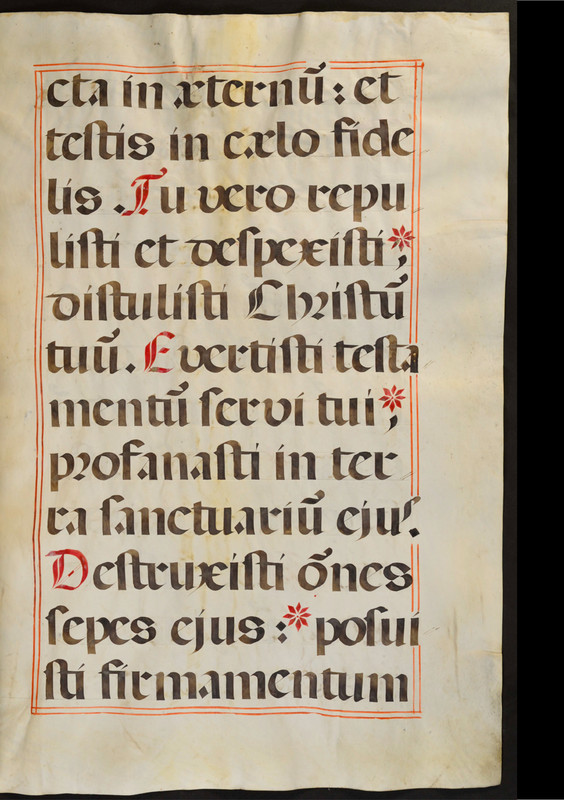 cta in æternũ: et
teſtis in cælo fide
lis. Tu vero repu
liſti et deſpexiſti;*
diſtuliſti Chriſtũ
tuũ. Evertiſti teſta
mentũ ſervi tui;*
profanaſti in ter
ra ſanctuariũ ejuſ.
Deſtruxiſti õnes
ſepes ejus:* poſui
ſti firmamentum